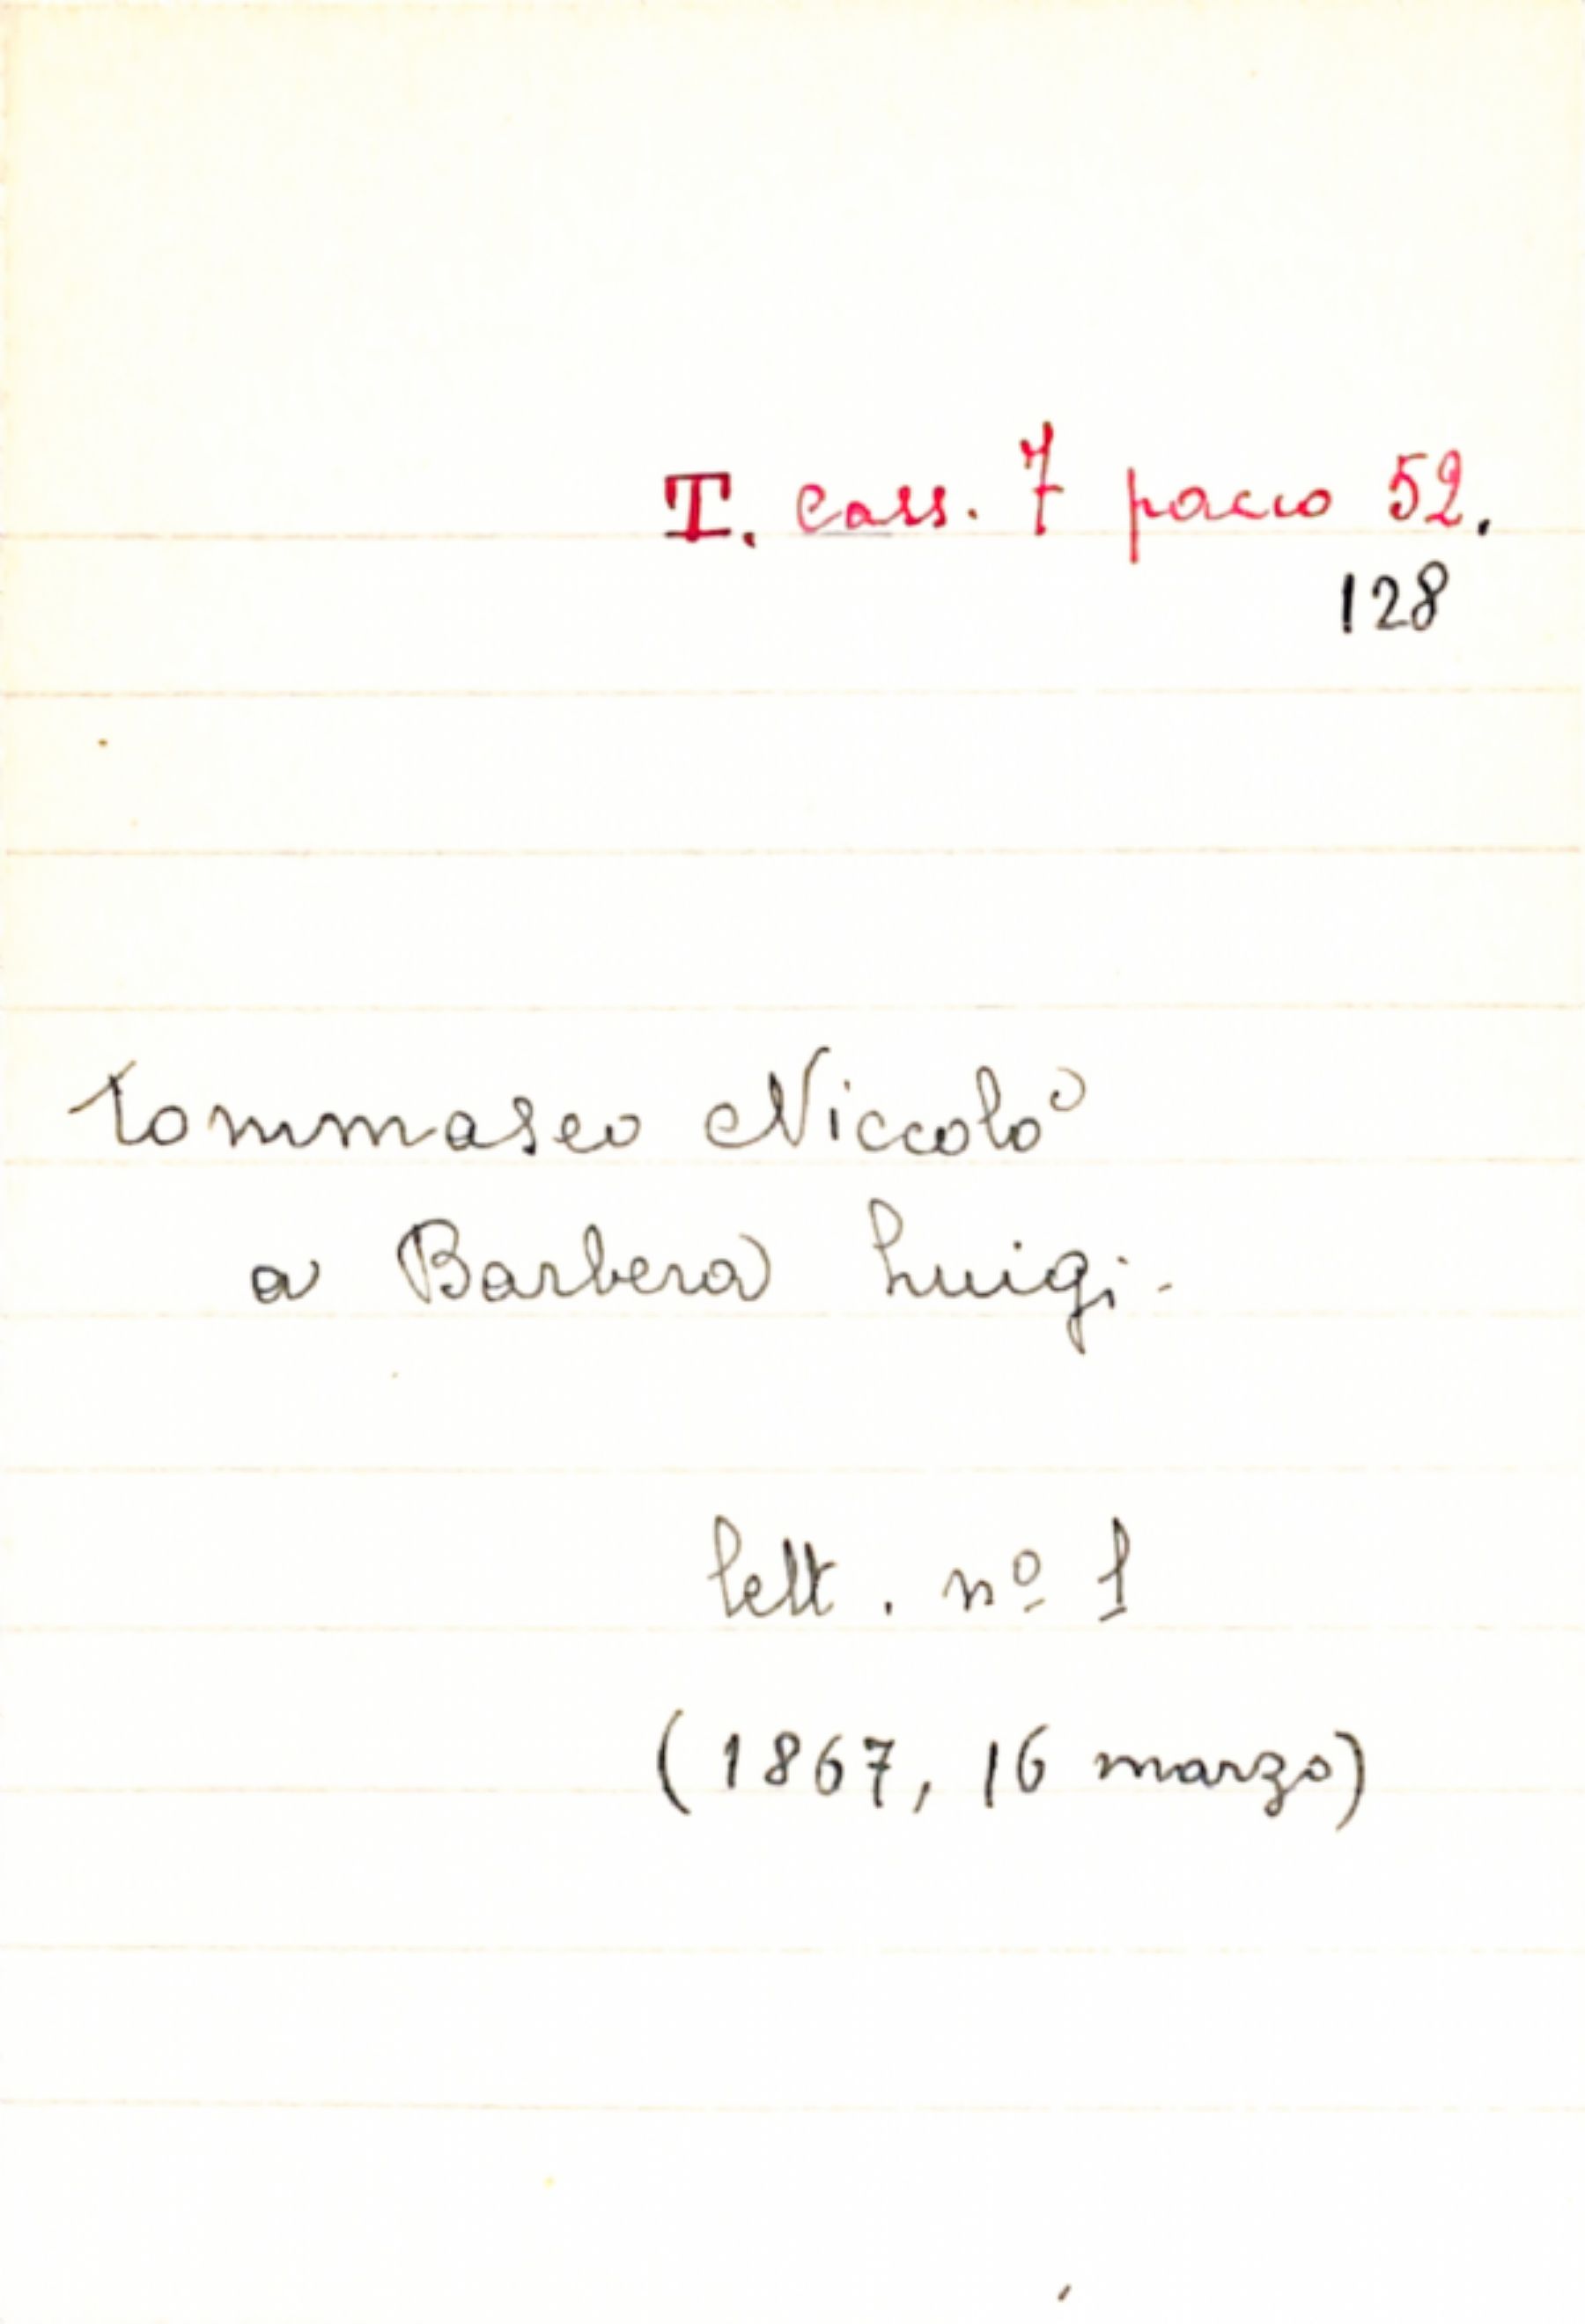 T. Cass. 7 pacco 52.
128
Tommaseo Niccolò
a Barbera Luigi.
lett. nº 1
(1867, 16 marzo)